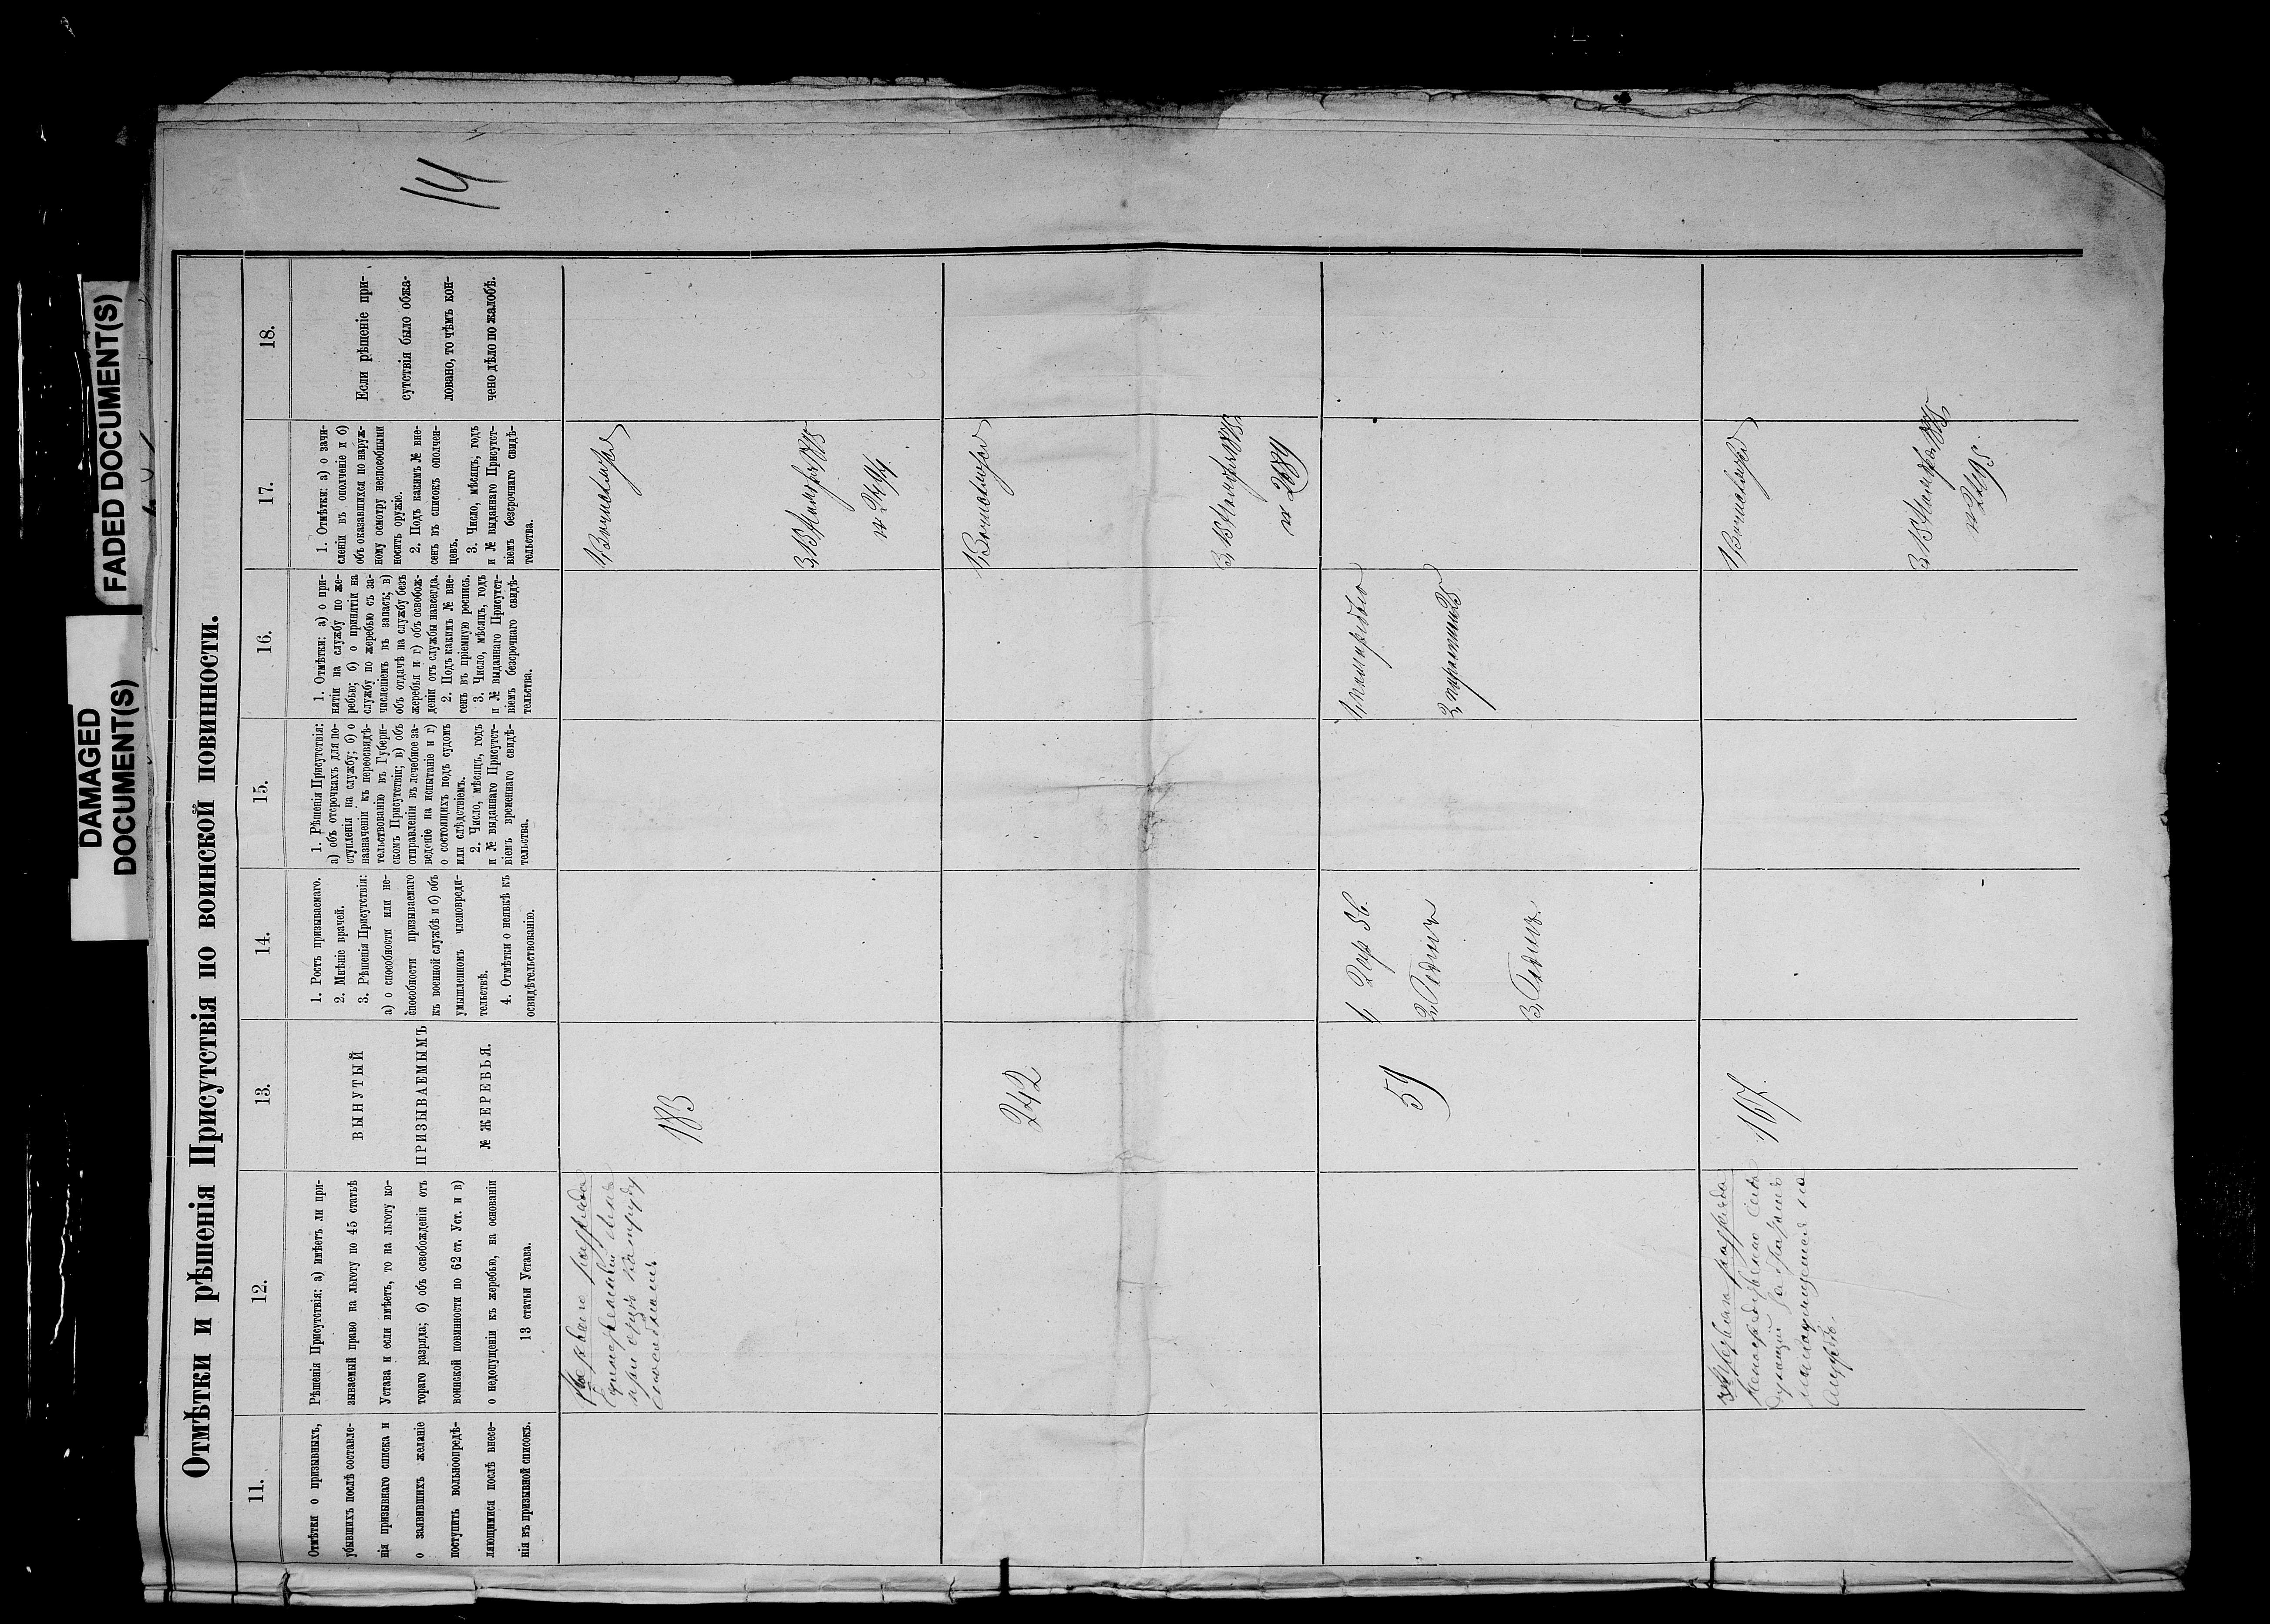 DAMAGED
DOCUMENT(S)
FADED DOCUMENT(S)
14
Отмѣтки и рѣшенія Присутствія по воинской повинности.
11.
Отмѣтки о призывныхъ,
убывшихъ послѣ составле-
нія призывнаго списка и
о заявившихъ желаніе
поступить вольноопредѣ-
ляющимися послѣ внесе-
нія въ призывной списокъ.
12.
Рѣшенія Присутствія: а) имѣетъ ли при-
зываемый право на льготу по 45 статьѣ
Устава и если имѣетъ, то на льготу ко-
тораго разряда; б) объ освобожденіи отъ
воинской повинности по 62 ст. Уст. и в)
о недопущеніи къ жеребью, на основаніи
13 статьи Устава.
13.
ВЫНУТЫЙ
ПРИЗЫВАЕМЫМЪ
№ ЖЕРЕБЬЯ.
14.
1. Ростъ призываемаго.
2. Мнѣніе врачей.
3. Рѣшенія Присутствія:
а) о способности или не-
способности призываемаго
къ военной службѣ и б) объ
умышленномъ членовреди-
тельствѣ.
4. Отмѣтки о неявкѣ къ
освидѣтельствованію.
15.
1. Рѣшенія Присутствія:
а) объ отсрочкахъ для по-
ступленія на службу; б) о
назначеніи къ переосвидѣ-
тельствованію въ Губерн-
скомъ Присутствіи; в) объ
отправленіи въ лечебное за-
веденіе на испытаніе и г)
о состоящихъ подъ судомъ
или слѣдствіемъ.
2. Число, мѣсяцъ, годъ
и № выданнаго Присутст-
віемъ временнаго свидѣ-
тельства.
16.
1. Отмѣтки: а) о при-
нятіи на службу по же-
ребью; б) о принятіи на
службу по жеребью съ за-
численіемъ въ запасъ; в)
объ отдачѣ на службу безъ
жеребья и г) объ освобож-
деніи отъ службы навсегда.
2. Подъ какимъ № вне-
сенъ въ пріемную роспись.
3. Число, мѣсяцъ, годъ
и № выданнаго Присутст-
віемъ безсрочнаго свидѣ-
тельства.
17.
1. Отмѣтки: а) о зачи-
сленіи въ ополченіе и б)
объ оказавшихся по наруж-
ному осмотру неспособными
носить оружіе.
2. Подъ какимъ № вне-
сенъ въ списокъ ополчен-
цевъ.
3. Число, мѣсяцъ, годъ
и № выданнаго Присутст-
віемъ безсрочнаго свидѣ-
тельства.
18.
Если рѣшеніе при-
сутствія было обжа-
ловано, то чѣмъ кон-
чено дѣло по жалобѣ.
Перваго разряда
при отцѣ
183
242
1, 2 ар 5 в.
2, Годенъ
3, Годенъ.
59
1, по жеребью
167.